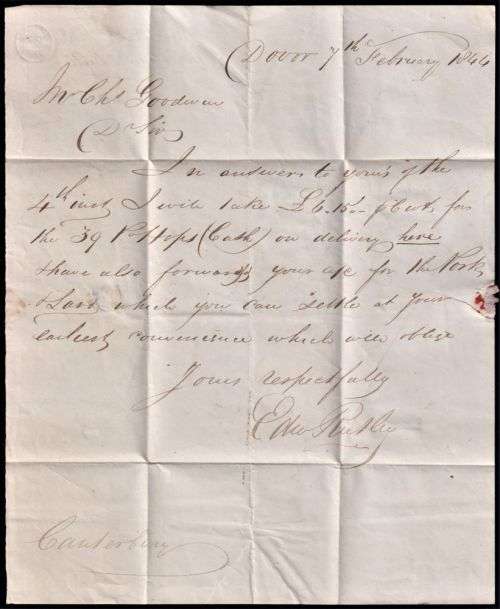 Dovor 7th February 1844
Mr Chs Goodwin
Dr Sir
In answer to yours of the
4th inst I will take £6.15.- p Cwt, for
the 39 P. Hops (Cash) on delivery here
I have also forward your a/c for the Pork,
& Lard which you can settle at your
earliest convenience which will oblige
Yours respectfully
Edw
Canterbury